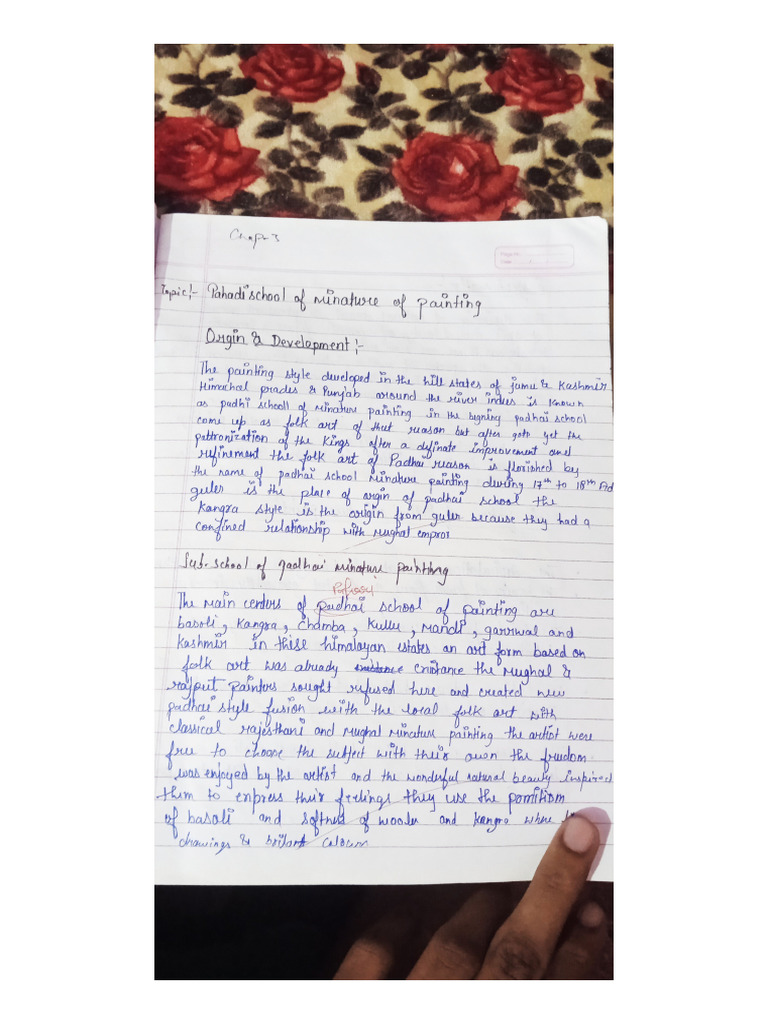 Chap-3
Page No.
Date
Topic:- Pahadi school of minature of painting
Orgin & Development:-
The painting style developed in the hill states of jumu & Kashmir
Himachal prades & Punjab around the river indies is known
as padhi schooll of minature painting in the bigning padhai school
come up as folk art of that reason but after goto yet the
pattronization of the Kings after a definate improvement and
refinement the folk art of Padhai reason is florished by
the name of padhai school minature painting during 17th to 18th
guler is the place of orgin of padhai school the
Kangra style is the origin from guler because they had a
confined relationship with mughal empror
Sub. school of padhai minature painting
The main centers of padhai school of painting are
basoli, Kangra, Chamba, Kullu, Mandi, garrwal and
Kashmir in these himalayan states an art form based on
folk art was already the Mughal &
rajput painters sought refused here and created new
padhai style fusion with the local folk art with
classical rajesthani and mughal minature painting the artist were
free to choose the subject with their own the freedom.
was enjoyed by the artist and the wonderful natural beauty inspired
them to express their feelings they use the
of basoli and softness of and Kangra where
drawings &